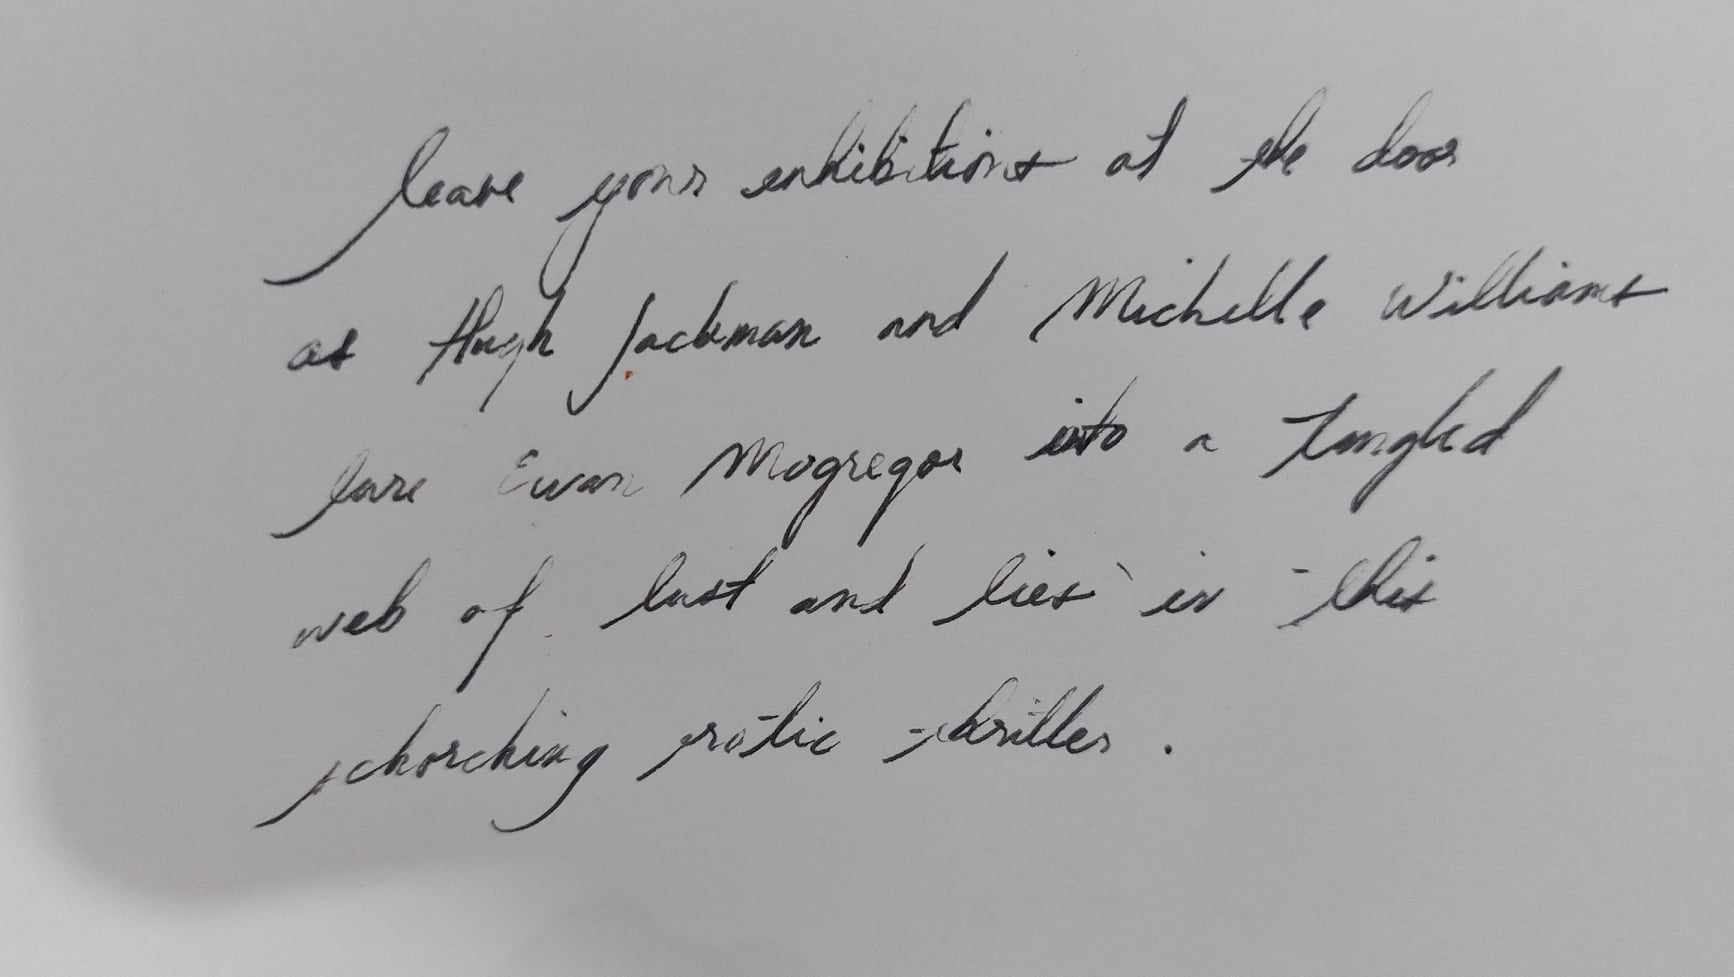 leave your enhibitions at the door
as Hugh Jackman and Michelle Williams
lure Ewan Mogregor into a tangled
web of lust and lies in this
schorching erotic thriller.